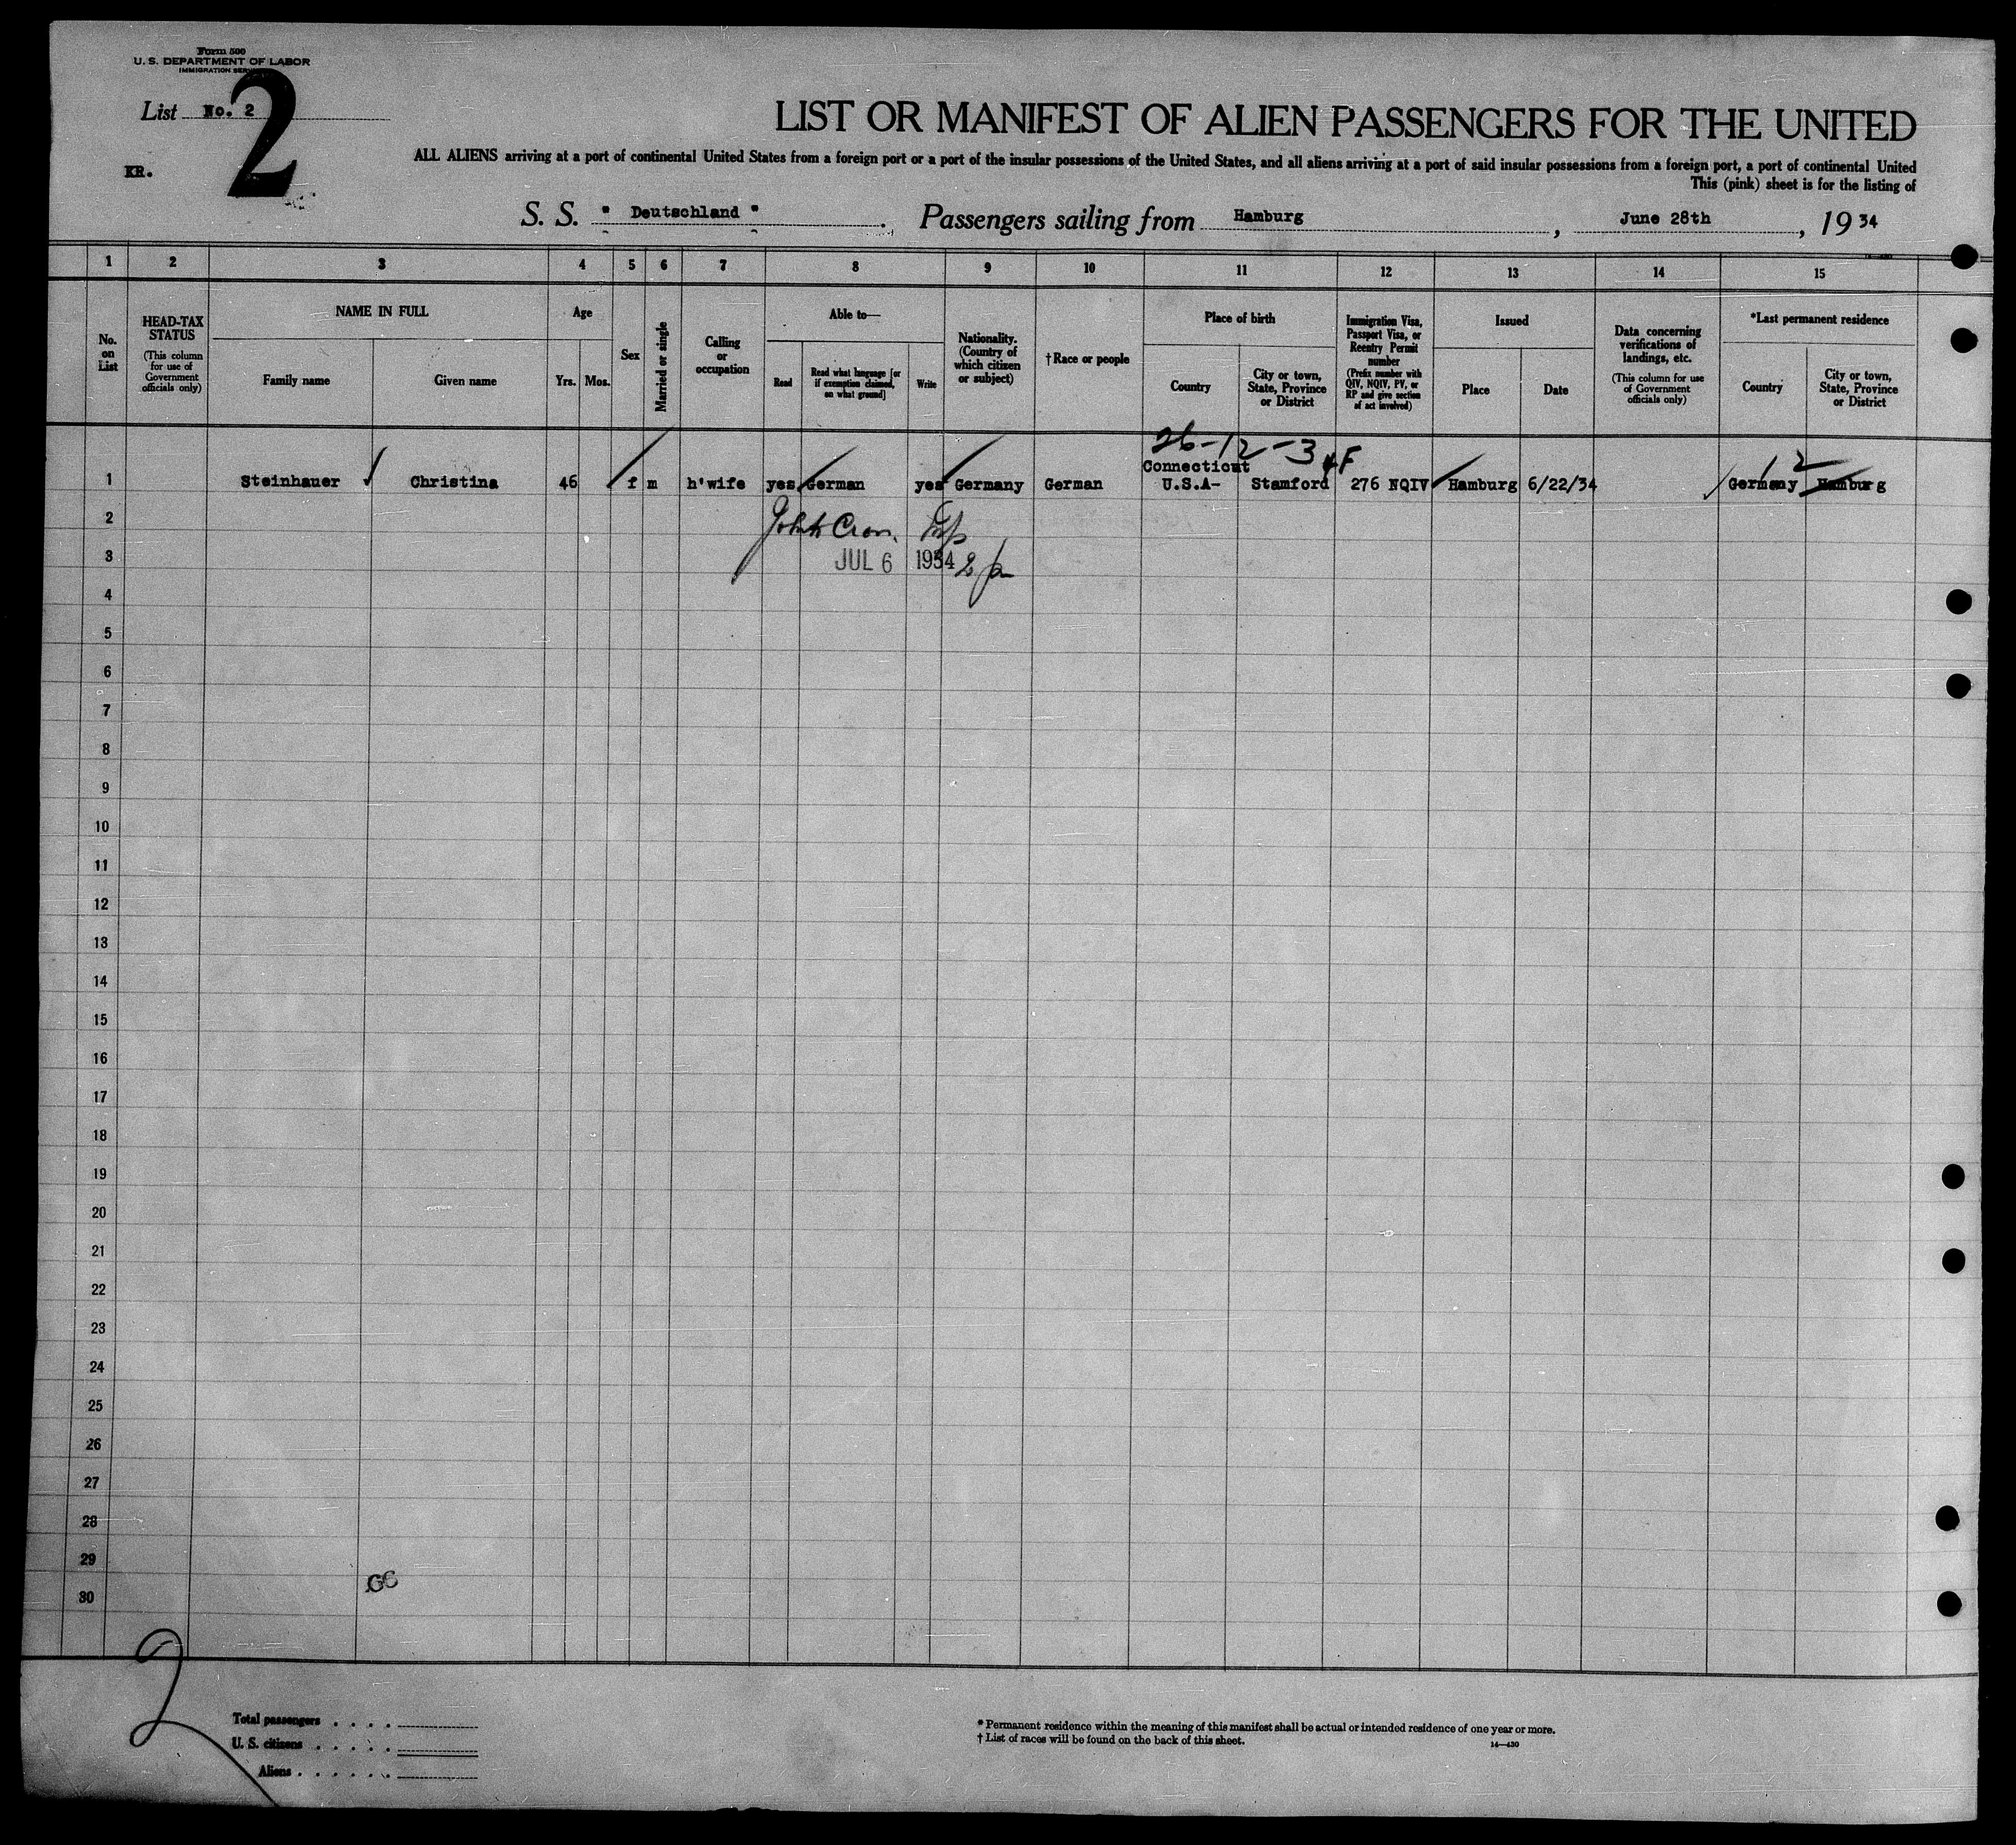 Form 500
U. S. DEPARTMENT OF LABOR
IMMIGRATION SERVICE
List No. 2
2
KR.
LIST OR MANIFEST OF ALIEN PASSENGERS FOR THE UNITED
ALL ALIENS arriving at a port of continental United States from a foreign port or a port of the insular possessions of the United States, and all aliens arriving at a port of said insular possessions from a foreign port, a port of continental United
This (pink) sheet is for the listing of
S. S. " Deutschland " Passengers sailing from Hamburg, June 28th, 1934
1 2 3 4 5 6 7 8 9 10 11 12 13 14 15
No. on List
HEAD-TAX STATUS
(This column for use of Government officials only)
NAME IN FULL
Family name
Given name
Age
Yrs. Mos.
Sex
Married or single
Calling or occupation
Able to—
Read
Read what language [or if exemption claimed, on what ground]
Write
Nationality. (Country of which citizen or subject)
†Race or people
Place of birth
Country
City or town, State, Province or District
Immigration Visa, Passport Visa, or Reentry Permit number
(Prefix number with QIV, NQIV, PV, or RP and give section of act involved)
Issued
Place
Date
Data concerning verifications of landings, etc.
(This column for use of Government officials only)
*Last permanent residence
Country
City or town, State, Province or District
26-12-3 4F
Connecticut 12
1 Steinhauer Christina 46 f m h'wife yes German yes Germany German U.S.A- Stamford 276 NQIV Hamburg 6/22/34 Germany Hamburg
2
3 JUL 6 1934
4
5
6
7
8
9
10
11
12
13
14
15
16
17
18
19
20
21
22
23
24
25
26
27
28
29
30
2
Total passengers . . . .
U. S. citizens . . . . .
Aliens . . . . . .
* Permanent residence within the meaning of this manifest shall be actual or intended residence of one year or more.
† List of races will be found on the back of this sheet.
14—430